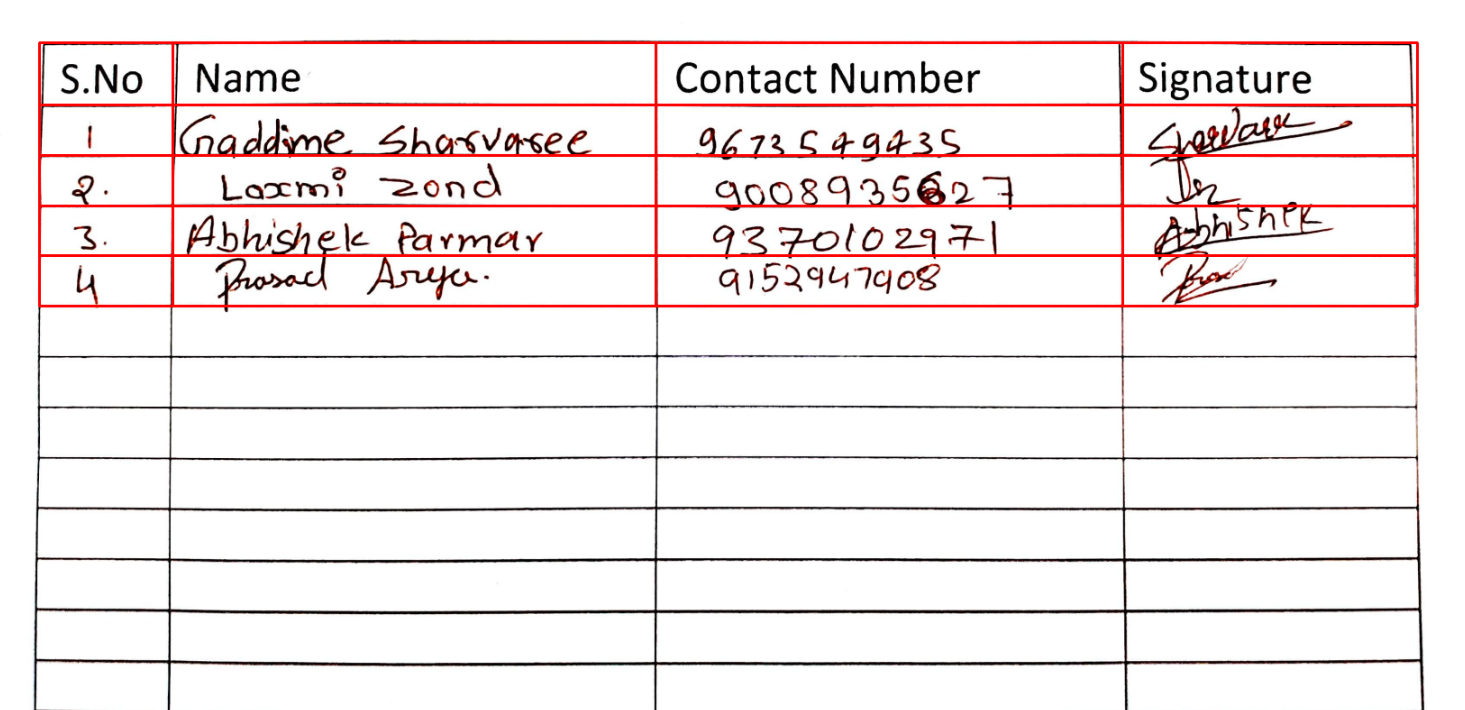 S.No Name Contact Number Signature
1 Gaddime Sharvaree 9673549435 Sharvaree
2. Laxmi Zond 9008935627
3. Abhishek Parmar 9370102971 Abhishek
4 Prasad Arya. 9152947908